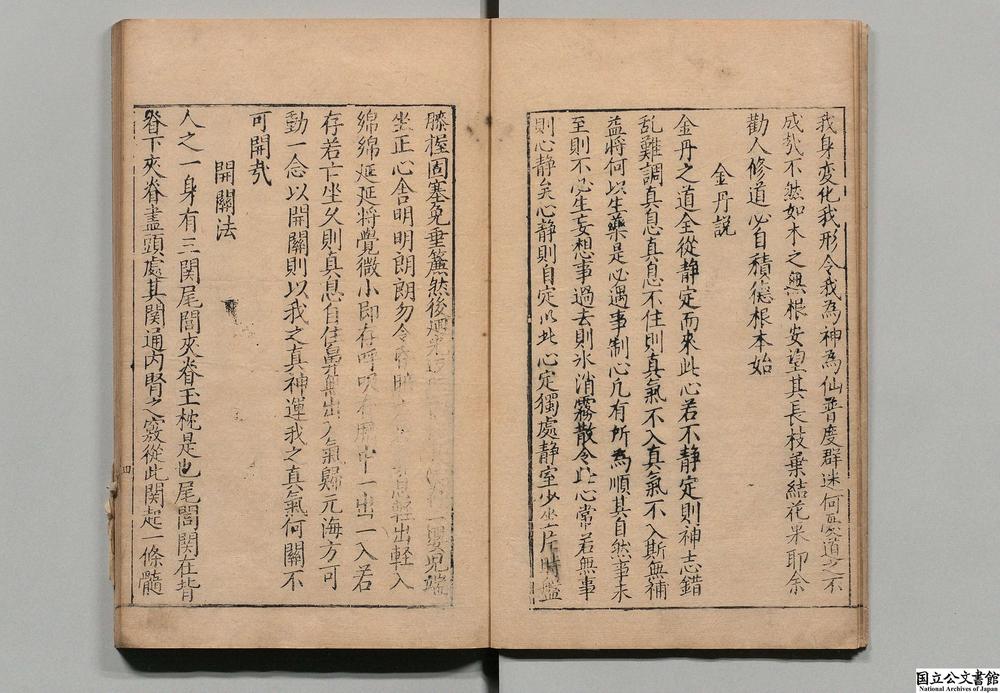 我身変化我形令我為神為仙普度群迷何患道之不
成㢤不然如木之無根安望其長枝葉結花果耶余
勸人修道必自積德根本始
金丹説
金丹之道全從静定而來此心若不静定則神志錯
乱難調真息真息不住則真氣不入真氣不入斯無補
益將何以生藥是必遇事制心凡有所為順其自然事未
至則不必生妄想事過去則氷消霧散令此心常若無事
則心静矣心静則自定以此心定獨處静室少坐片時盤
膝握固塞兌垂簾然後 一嬰児端
坐正心舍明明朗朗勿令昏 息軽出軽入
綿綿延延將覺微小即存呼吸 中一出一入若
存若亡坐久則真息自住鼻無出入氣歸元海方可
動一念以開關則以我之真神運我之真氣何關不
可開㢤
開關法
人之一身有三関尾閭夾脊玉枕是也尾閭関在背
脊下夾脊盡頭處其関通内腎之竅從此関起一條髓
四
国立公文書館
National Archives of Japan